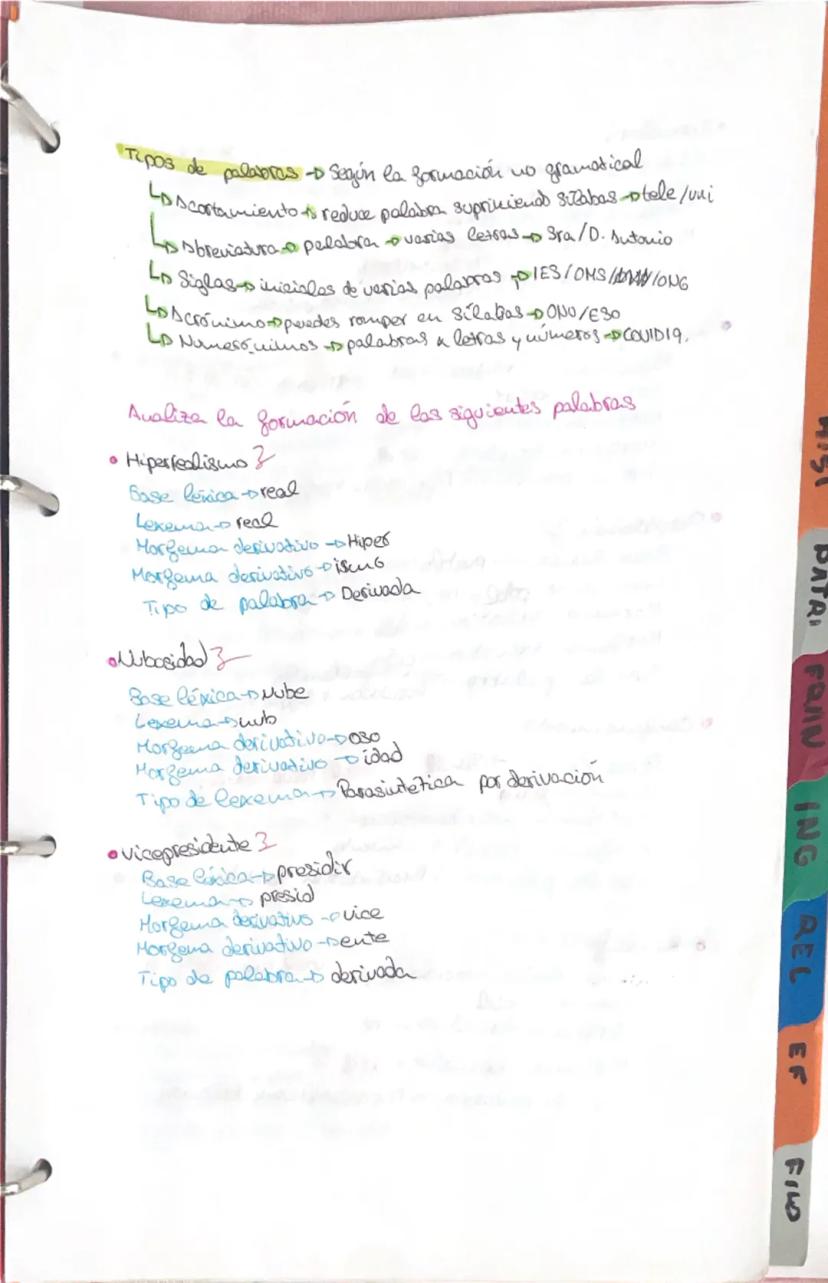 Tipos de palabras → Según la formación no gramatical
↳ Acortamiento → reduce palabra suprimiendo sílabas → tele/uni
↳ Abreviatura → palabra → varias letras → Sra/D. Antonio
↳ Siglas → iniciales de varias palabras → IES/OMS/ONG
↳ Acrónimo → puedes romper en sílabas → ONU/ESO
↳ Numerónimos → palabras letras y números → COVID19.
Analiza la formación de las siguientes palabras
• Hiperrealismo
Base léxica → real
Lexema → real
Morfema derivativo → Hiper
Morfema derivativo → ismo
Tipo de palabra → Derivada
• Nubosidad
Base léxica → Nube
Lexema → nub
Morfema derivativo → oso
Morfema derivativo → idad
Tipo de lexema → Parasintética por derivación
• vicepresidente
Base léxica → presidir
Lexema → presid
Morfema derivativo → vice
Morfema derivativo → ente
Tipo de palabra → derivada
HIST
DATRI
FQIIN
ING
REL
EF
FILO